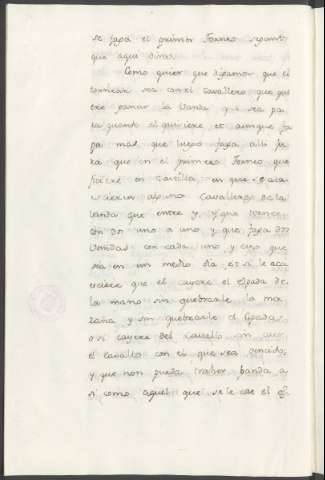 se faga el primer Torneo segunt
que aqui dirá.
Como quier que digamos que el
tornear sea con el Cavallero que qui
ere ganar la Vanda y sea pa
ra quanto él quisiere et aunque fa
ga mas que luego faga alli fe
rá que en el primero Torneo que
ficiere en Castilla en que se aca
ecieren algunos Cavalleros de la
banda que entre y que
con dos uno a uno y que faga dos
vendas con cada uno y esto que
sea en un medio dia et si le aca
eciere que el cayere el espada de
la mano sin quebrarle la ma
zana y sin quebrarle el espada
o si cayere del cavallo sin caer
el cavallo con el que sea vencido,
y que non pueda traher banda a
si como aquel que se le cae el